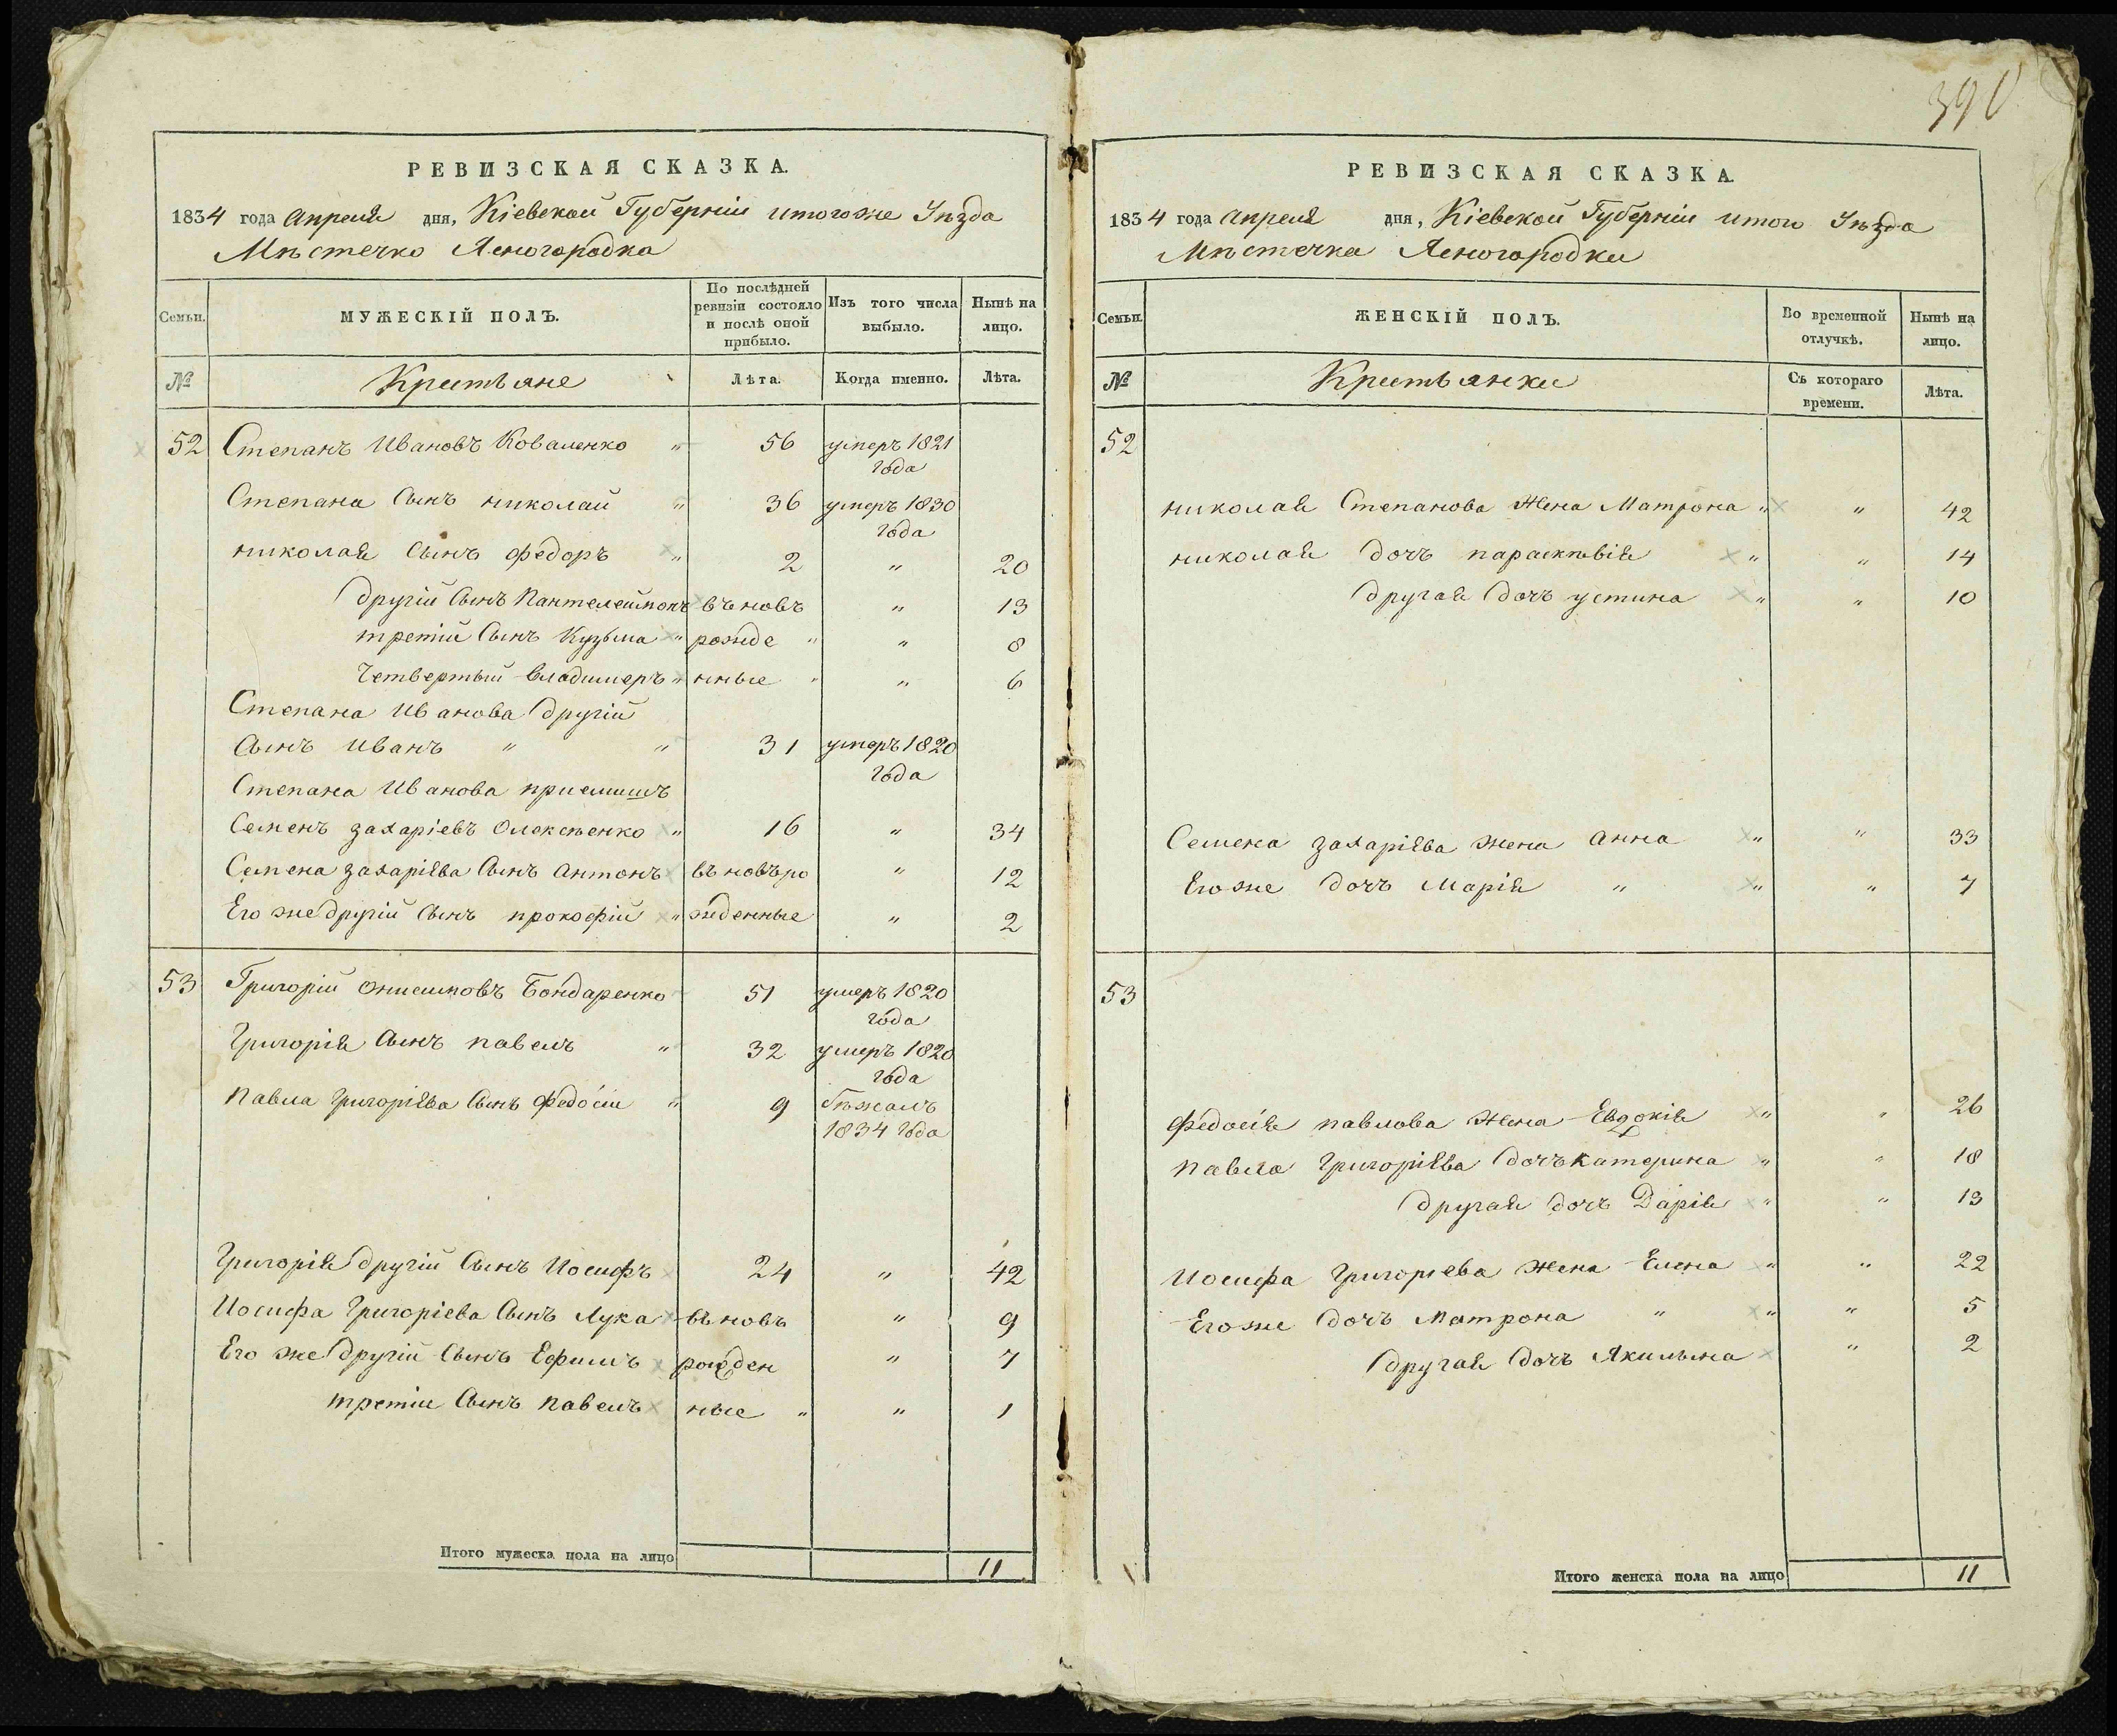 390
РЕВИЗСКАЯ СКАЗКА.
1834 года апреля дня, Кіевской Губерніи итогоже Уѣзда
Мѣстечко Ясногородка
Семьи. МУЖЕСКІЙ ПОЛЪ. По послѣдней ревизіи состояло и послѣ оной прибыло. Изъ того числа выбыло. Нынѣ на лицо.
№ Крестьяне Лѣта. Когда именно. Лѣта.
52 Степанъ Ивановъ Коваленко " 56 умеръ 1821
года
Степана Сынъ николай " 36 умеръ 1830
года
николая Сынъ федоръ " 2 " 20
другій Сынъ Пантелеймонъ въ новъ " 13
третій Сынъ Кузьма " рожде " " 8
Четвертый владимеръ " нные " " 6
Степана Иванова другій
Сынъ Иванъ " " 31 умеръ 1820
года
Степана Иванова приемишъ
Семенъ захаріевъ Олексѣенко " 16 " 34
Семена захаріева Сынъ антонъ въ новъ ро " 12
Его же другій Сынъ прокофій " жденные " 2
53 Григорій онисимовъ Бондаренко 51 умеръ 1820
года
Григорія Сынъ павелъ " 32 умеръ 1820
года
Павла григоріева Сынъ Федосій " 9 бѣжалъ
1834 года
Григорія другій Сынъ Иосифъ 24 " 42
Иосифа Григоріева Сынъ Лука въ новъ " 9
Его же другій Сынъ Ефимъ рожден " 7
третій Сынъ павелъ ные " " 1
Итого мужеска пола на лицо 11
РЕВИЗСКАЯ СКАЗКА.
1834 года апреля дня, Кіевской Губерніи итого Уѣзда
Мѣстечка Ясногородки
Семьи. ЖЕНСКІЙ ПОЛЪ. Во временной отлучкѣ. Нынѣ на лицо.
№ Крестьянки Съ котораго времени. Лѣта.
52
николая Степанова Жена Матрона " " 42
николая дочъ параскѣвія " " 14
другая дочъ устина " " 10
Семена захаріева жена анна " " 33
Егоже дочъ Марія " " " 7
53
Федосія павлова Жена Евдокія " " 26
Павла григоріева дочъ катерина " " 18
другая дочъ Дарія " " 13
Иосифа григорьева жена Елена " " 22
Егоже дочъ Матрона " " " 5
другая дочъ Якилина " 2
Итого женска пола на лицо 11